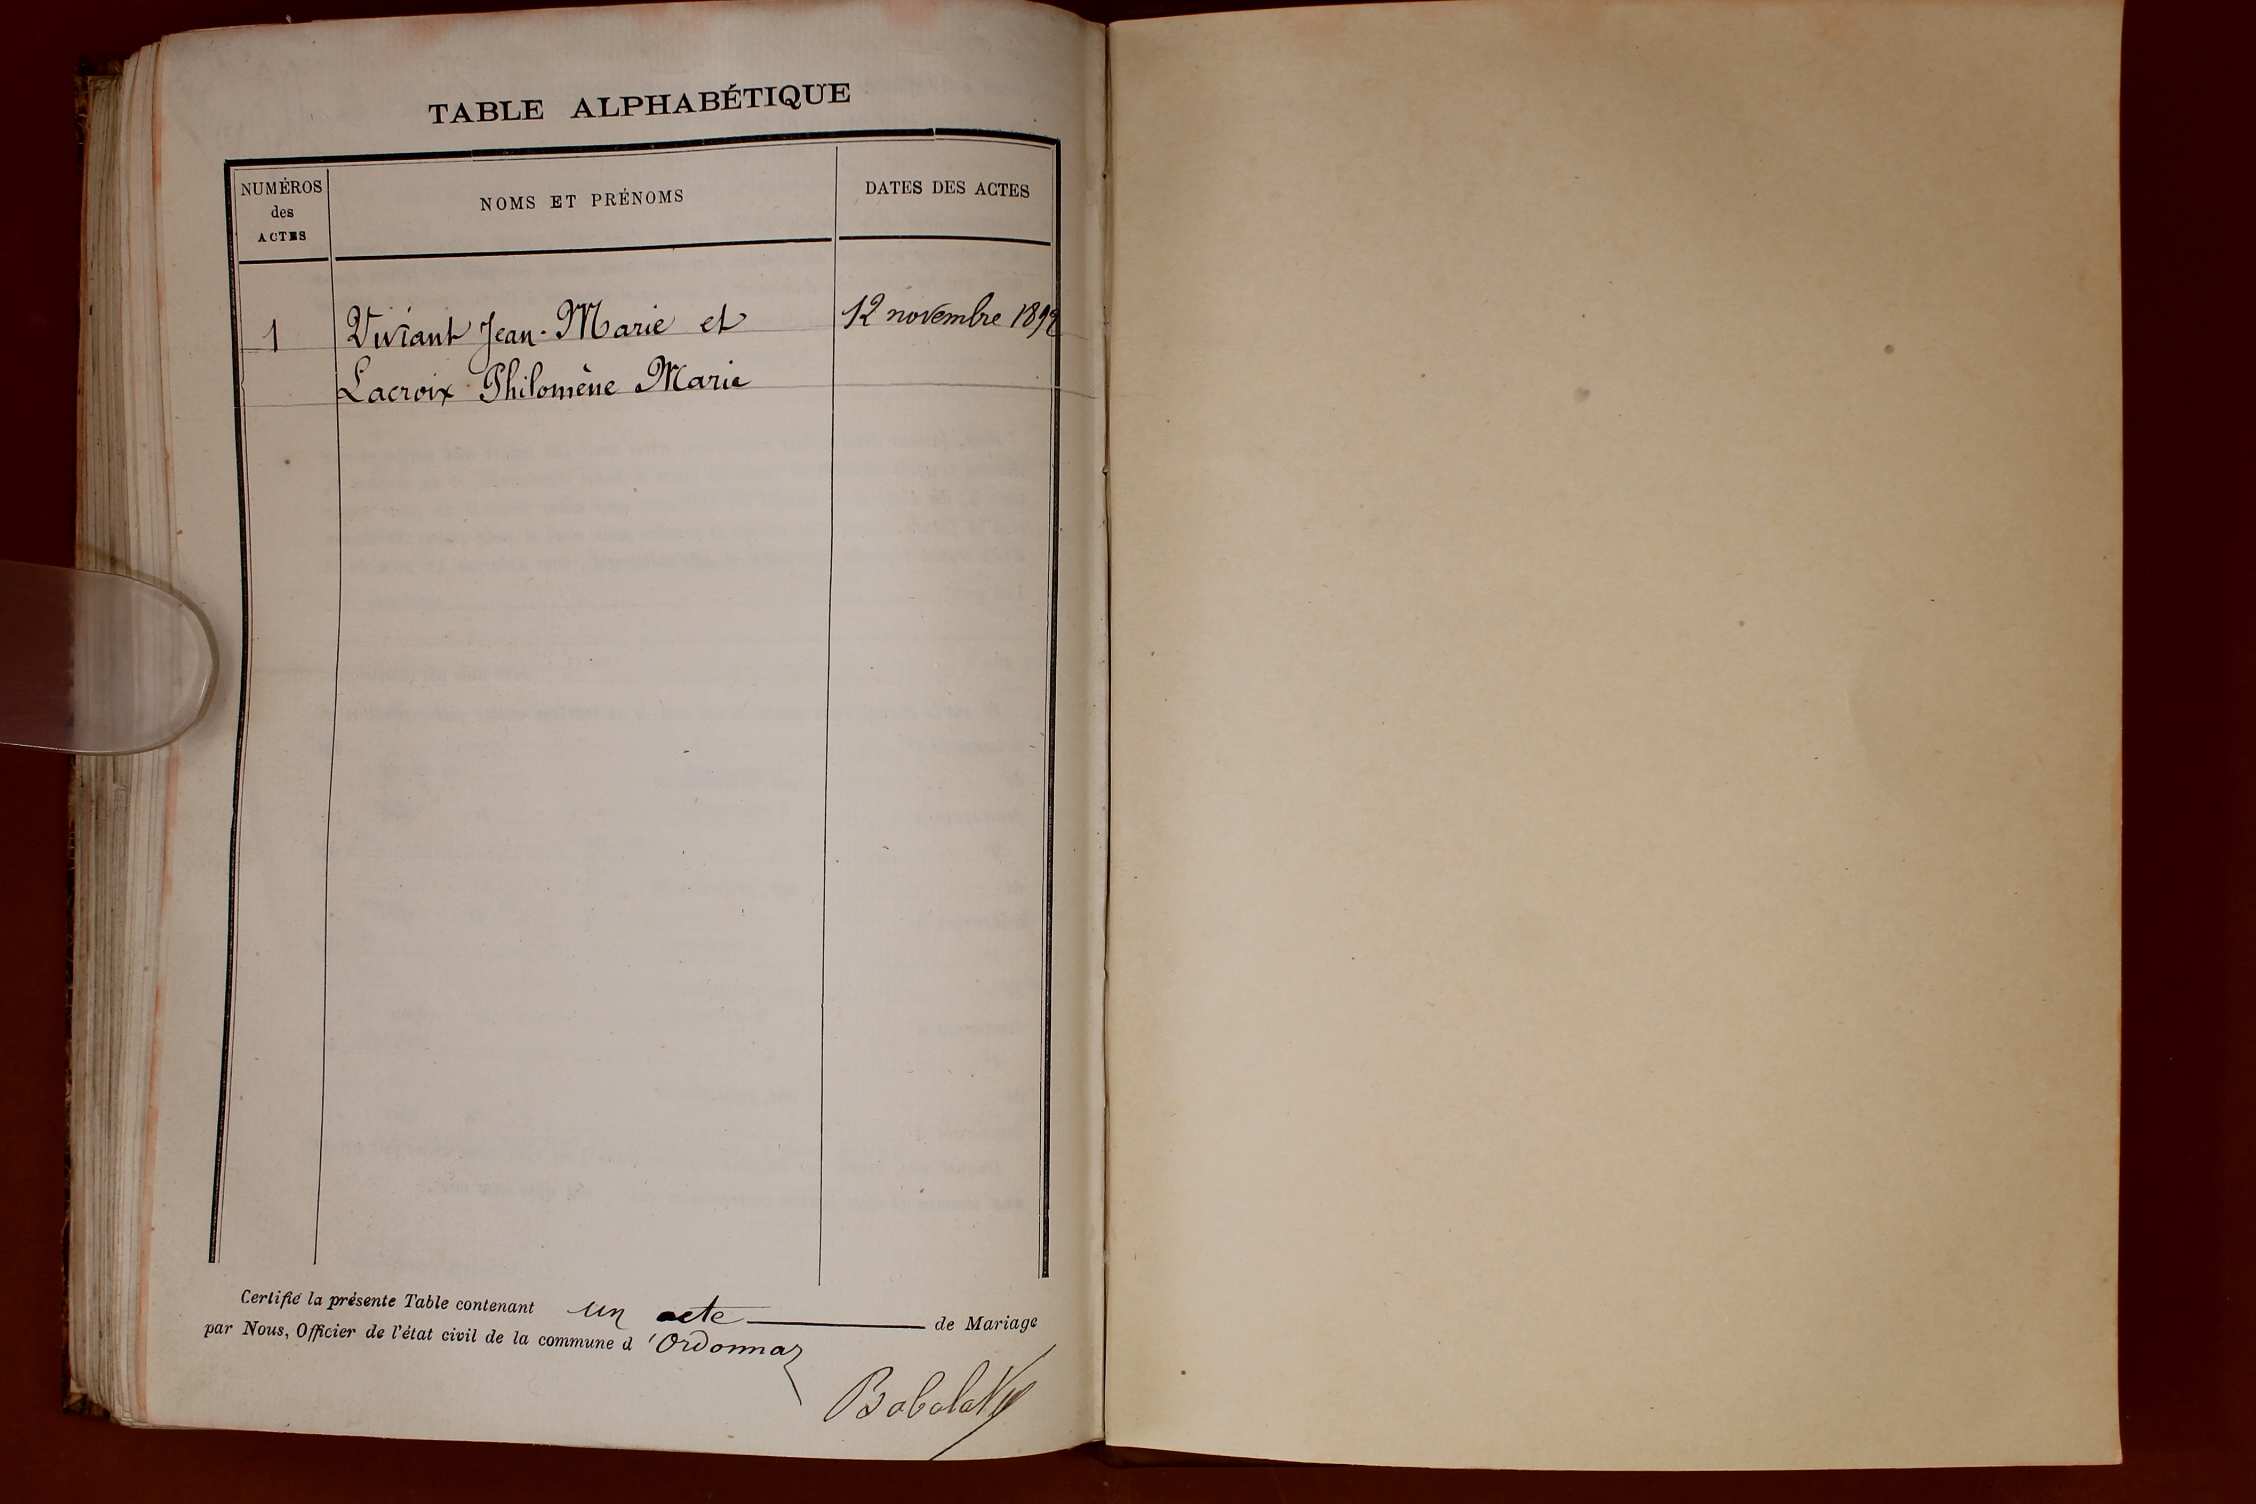 TABLE ALPHABÉTIQUE
NUMÉROS des ACTES
NOMS ET PRÉNOMS
DATES DES ACTES
1 Viviant Jean-Marie et 12 novembre
Lacroix Philomène Marie
Certifié la présente Table contenant un acte de Mariage
par Nous, Officier de l'état civil de la commune d'Ordonnaz